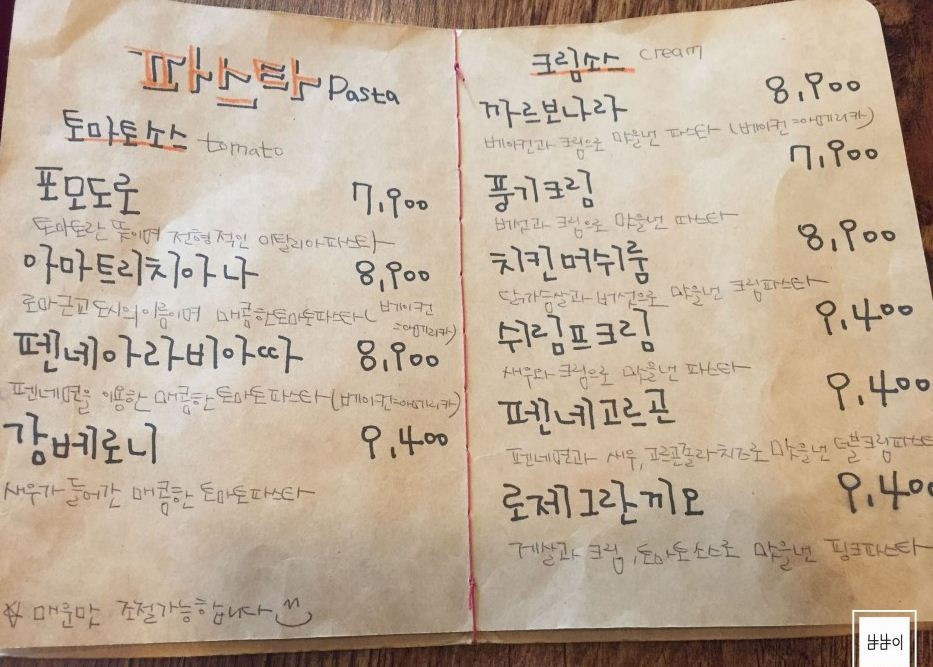 파스타 Pasta
토마토소스 tomato
포모도로 7,900
토마토란 뜻이며 전형적인 이탈리아파스타
아마트리치아나 8,900
로마근교도시의이름이며 매콤한토마토파스타(베이컨=아메리카)
펜네아라비아따 8,900
펜네면을 이용한 매콤한토마토파스타(베이컨=아메리카)
감베로니 9,400
새우가 들어간 매콤한 토마토파스타
☆ 매운맛 조절가능합니다
크림소스 cream
까르보나라 8,900
베이컨과 크림으로 맛을낸 파스타 (베이컨=아메리카)
풍기크림 7,900
버섯과 크림으로 맛을낸 파스타
치킨머쉬룸 8,900
닭가슴살과버섯으로 맛을낸 크림파스타
쉬림프크림 9,400
새우와 크림으로 맛을낸 파스타
펜네고르곤 9,400
펜네면과 새우,고르곤졸라치즈로 맛을낸 더블크림파스타
로제그란끼오 9,400
게살과 크림,토마토소스로 맛을낸 핑크파스타
냠냠이